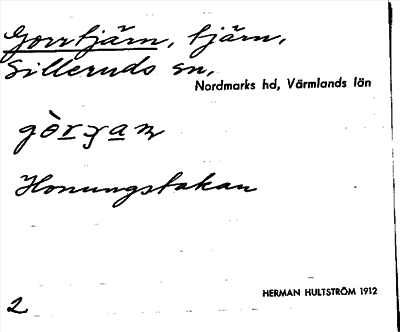 Gorrtjärn, tjärn,
Silleruds sn,
Nordmarks hd, Värmlands län
Honungskakan
HERMAN HULTSTRÖM 1912
2